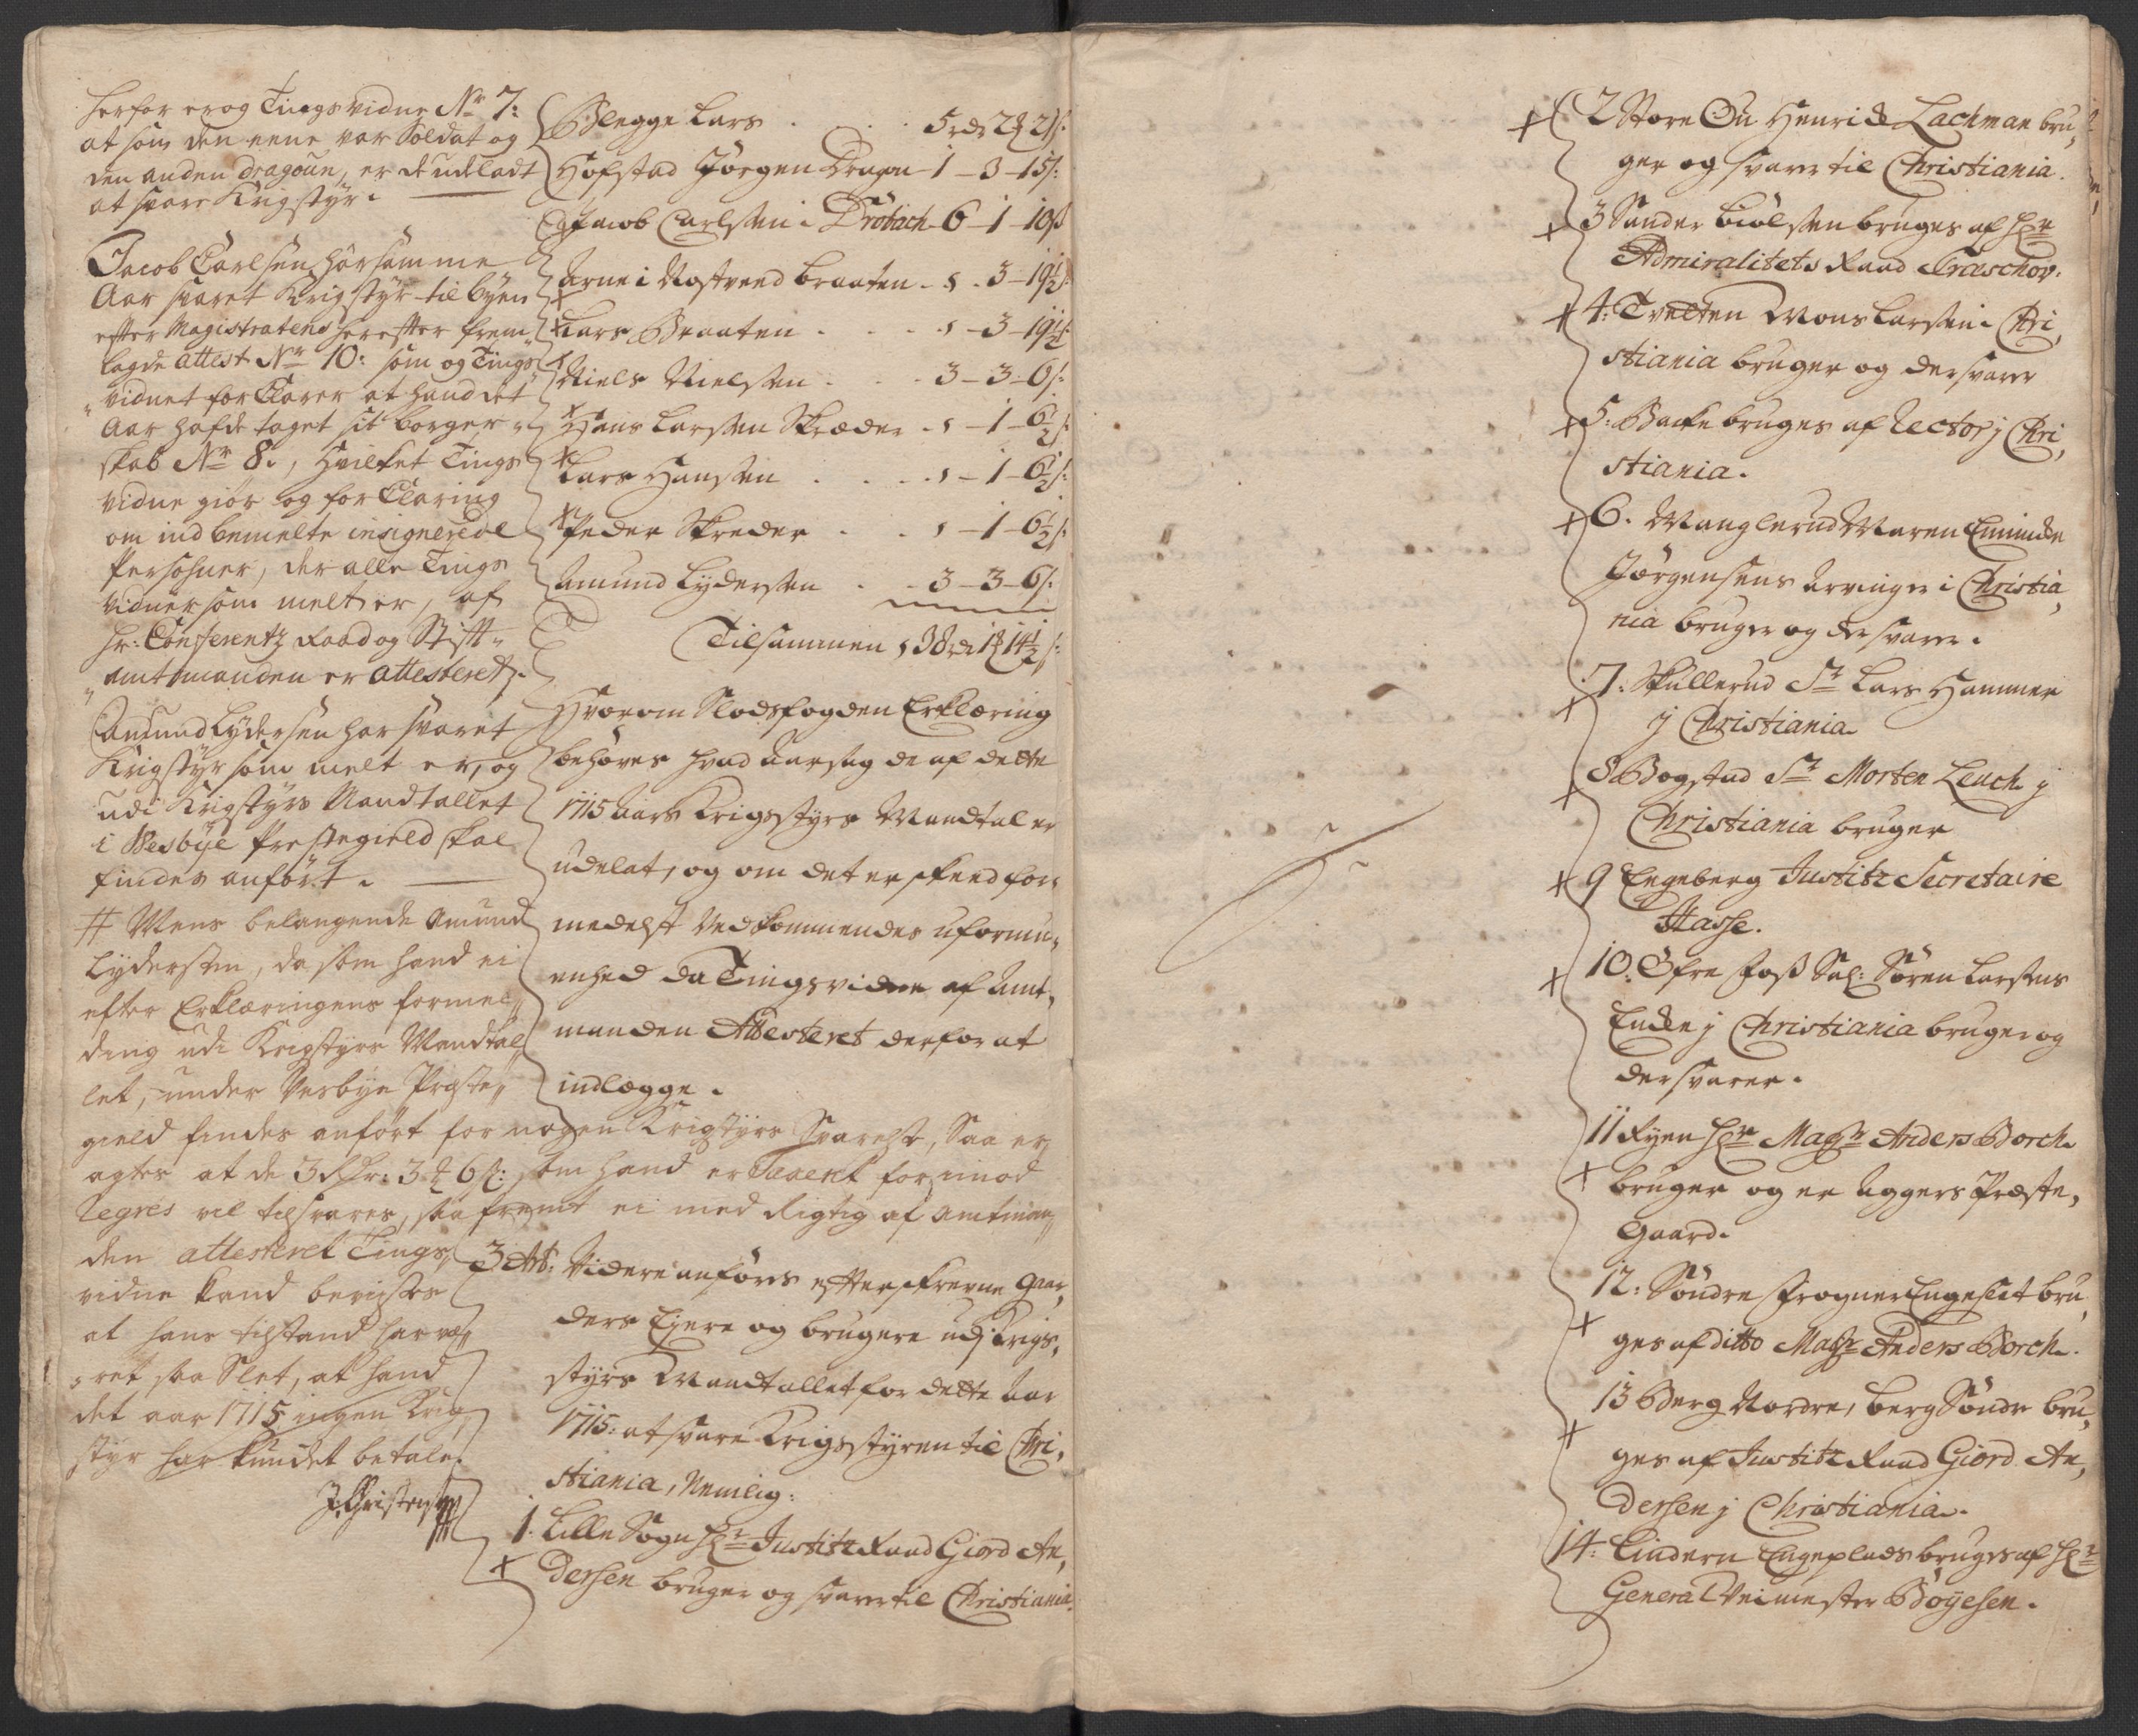 herfor er og Tings vidne No 7:
at som den eene var Soldat og
den anden dragoun, er de udeladt
at svare Krigstyr.
Jacob Carlsen har samme
Aar svaret Krigstyr til byen
efter Magistratens herefter frem
lagde attest Nr 10: som og Tings
vidnet forClarer at hand det
Aar hafde taget sit borger
skab Nr 8., hvilket Tings
vidne giør og forClaring
om indbemelte insignerede
Persohner, der alle Tings
vidner som melt er, af
Hr: Conferentz Raad og Stift
amtmanden er attesteret.
Amund Lydersen har svaret
Krigstyr som melt er, og
udi Krigstyrs Mandtallet
i Wesbye Prestegield skal
findes anført.
# Mens belangende Amund
Lydersen, da som hand ei
efter Erklæringens formel
ding udi Krigstyrs Mandtal
let, under Vesbye Præste
gield findes anført for nogen Krigstyrs Svarelse, Saa er
agtes at de 3 Rdr: 3 # 6 s: som hand er Taxerit for imod
Regres vil tilsvares, saa fremt ei med Rigtig af Amtman
den attesteret Tings
vidne kand bevises
at hans tilstand har væ
ret saa Slet, at hand
det aar 1715 ingen Krig
styr har kundet betale.
J. Christensen
Blegge Lars . . . 5 rdr 2 # 21 s:
Hofstad Jørgen Dragon - 1 - 3 - 15 s:
Jacob Carlsen i Drøbach - 6 - 1 - 10 s
Arne i Nostvend braaten - s - 3 - 19½ s:
Lars Braaten . . . s - 3 - 19½ s:
Niels Nielsen . . . 3 - 3 - 6 s:
Hans Larsen Skræder - s - 1 - 6½ s:
Lars Hansen . . . s - 1 - 6½ s:
Peder Skreder . . s - 1 - 6½ s:
Amund Lydersen . . 3 - 3 - 6 s:
Tilsammen s 38 rdr 1 # 14½ s:
Hvorom Slodsfogden Erklæring
behøves hvad Aarsag de af dette
1715 Aars Krigsstyrs Mandtal er
udelat, og om det er skeed for
medelst Vedkommendes uformu
enhed da Tingsvidne af Amt
manden Attesteret derfor at
indlægge.
3 Art: Videre anføres efterskrevne Gaar
ders Ejere og brugere udj Krigs
styrs Mandtallet for dette Aar
1715: at svare Krigsstyren til Chri
stiania, Nemlig:
1. Lille Sogn Hr Justitz Raad Giord An
dersen bruger og svarer til Christiania.
2 Store Øu Henrich Lachman bru
ger og svarer til Christiania.
3 Sander biølsen bruges af Hr
Admiralitets Raad Træschov:
4: Tvetten Mons Larsen i Chri
stiania bruger og der svarer
5: Backe bruges af Rector j Chri
stiania.
6. Manglerud Maren Eniencke
Jørgensens Arvinger i Christia
nia bruger og der svarer.
7: Skullerud Sr Lars Hammer
j Christiania
8 Bogstad Sr Morten Leuch j
Christiania bruger
9 Engeberg Justitz Secretaire
Stasse.
10: Øfre Foss Sal: Søren Larsens
Encke j Christiania bruger og
der svarer.
11 Ryen Hr Magr Anders Borch
bruger og er Aggers Præste
Gaard.
12: Søndre Frogner Engeslet bru
ges af ditto Magr Anders Borch.
13 Berg Nordre, berg Søndr bru
ges af Justitz Raad Giord An
dersen j Christiania.
14: Lindern Engeplads bruges af Hr
General Veimester Bøyesen.